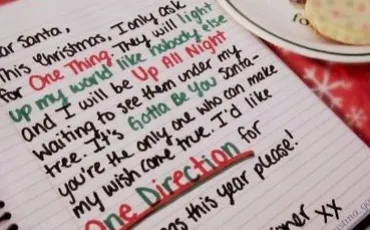 ear Santa,
This Christmas, I only ask
for One Thing. They will light
up my world like nobody else
and I will be Up All Night
waiting to see them under my
tree. It's Gotta Be You santa-
you're the only one who can make
my wish come true. I'd like
One Direction for
mas this year please!
xx
fo